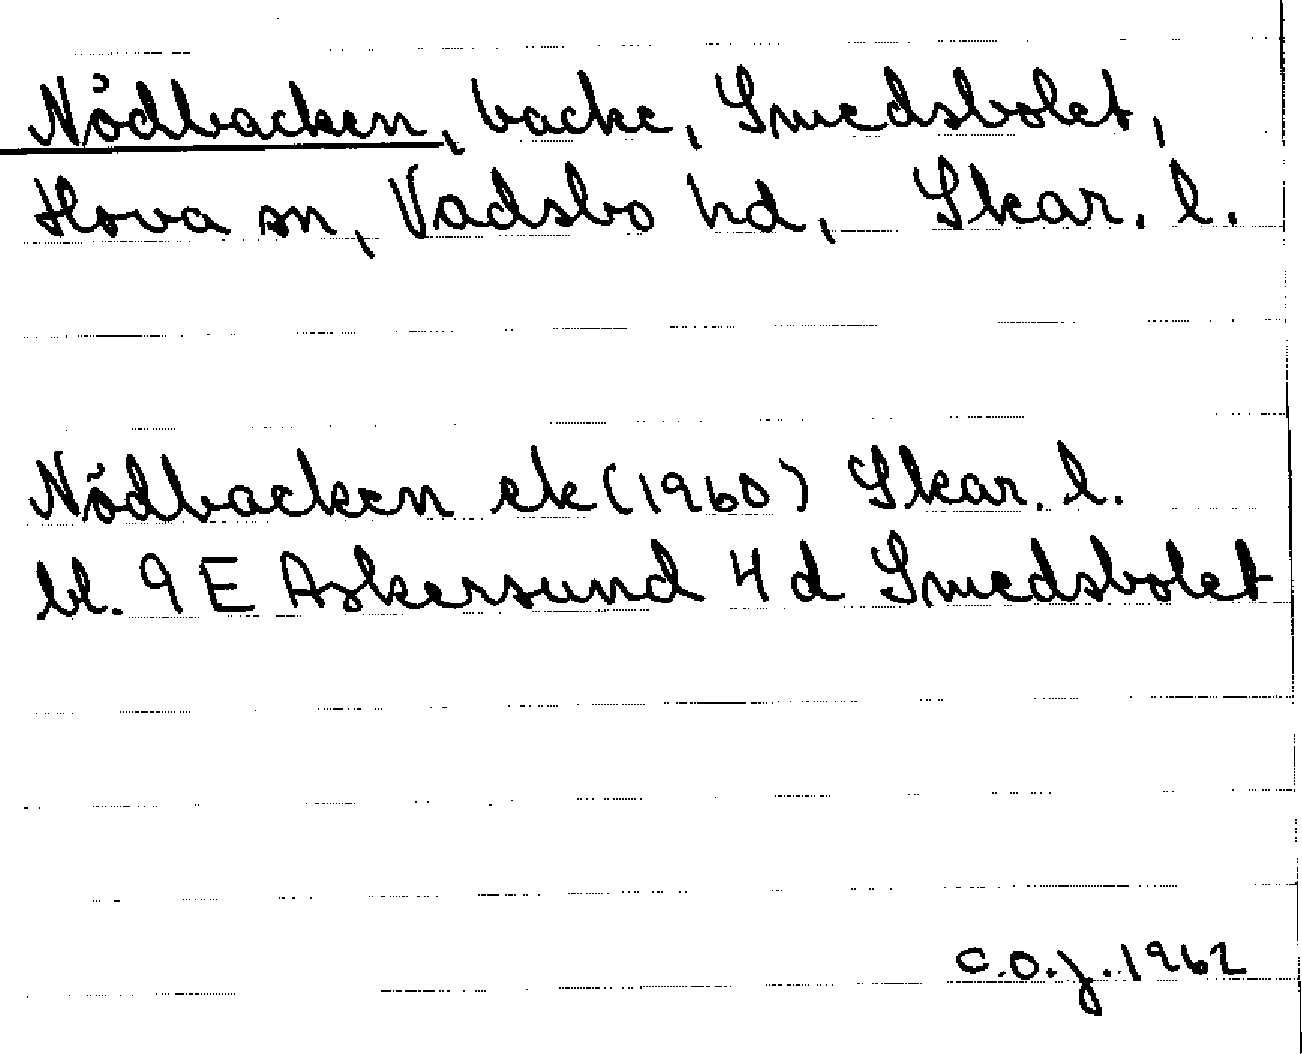 Nödbacken, backe, Smedsbolet,
Hova sn, Vadsbo hd, Skar. l.
Nödbacken ek (1960) Skar. l.
bl. 9 E Askersund 4 d Smedsbolet
C.O.J. 1962